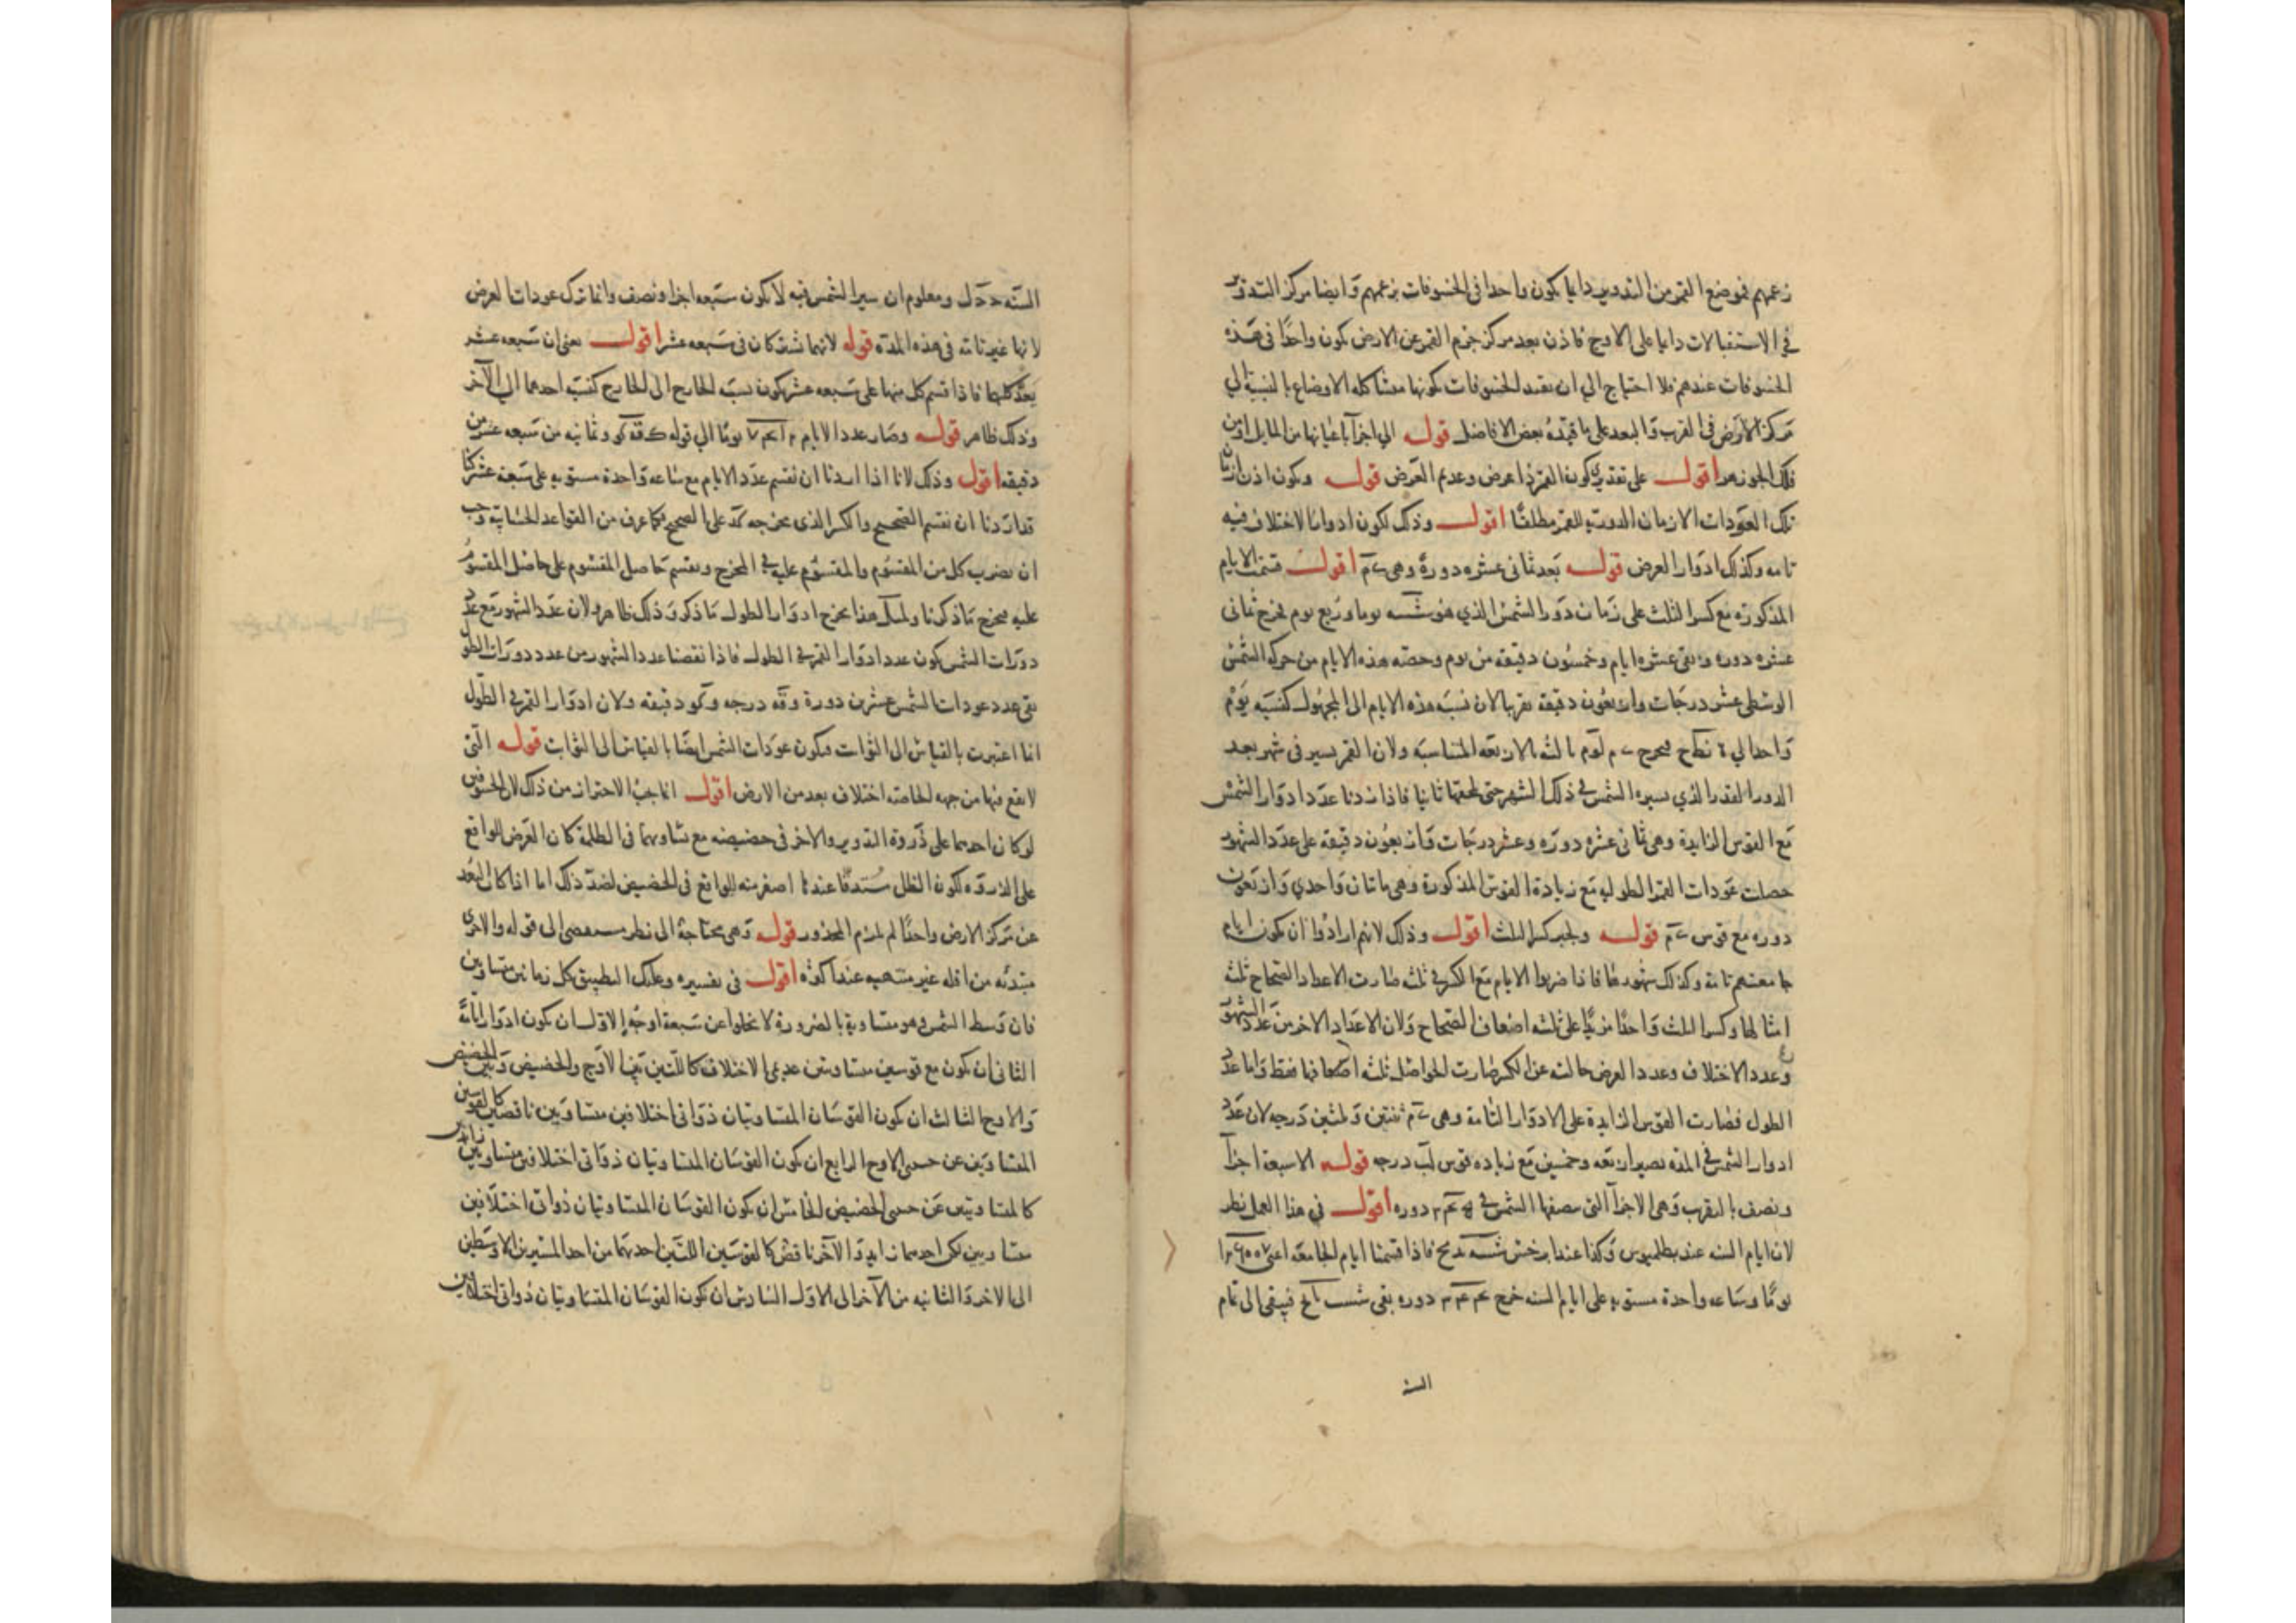 زعمهم فموضع القمر من التدوير دايما يكون واحدا فى الخسوفات بزعمهم وايضا مركز التدوير
فى الاستقبالات دايما على الاوج فاذن بعد مركز جرم القمر عن الارض يكون واحدا فى هذه
الخسوفات عندهم فلا احتياج الى ان يقيد الخسوفات بكونها متشاكله الاوضاع بالنسبة الى
مركز الارض فى القرب والبعد على ما قيده بعض الافاضل قوله الى اجزآ باعيانها من المايل او من
فلك الجوزهر اقول على تقدير كون القمر ذا عرض وعديم العرض قوله ويكون اذن ازمان
تلك العودات الازمان الدورية للقمر مطلقا اقول وذلك لكون ادوار الاختلاف فيه
تامه وكذلك ادوار العرض قوله بعد ثمانى عشره دورة وهى ى م اقول قسمت الايام
المذكوره مع كسر الثلث على زمان دور الشمس الذي هو شسه يوما وربع يوم فخرج ثمانى
عشره دوره وبقى عشره ايام وخمسون دقيقه من يوم وحصه هذه الايام من حركه الشمس
الوسطى عشر درجات واربعون دقيقه تقريبا لان نسبة هذه الايام الى المجهول كنسبه يوم
واحد الى ٥ نط ح فيخرج بالاربعه المتناسبه ولان القمر يسير فى شهر بعد
الدور القدر الذي يسيره الشمس فى ذلك الشهر حتى يلحقها ثانيا فاذا زدنا عدد ادوار الشمس
مع القوس الزايدة وهى ثمانى عشره دوره وعشر درجات واربعون دقيقه على عدد الشهور
حصلت عودات القمر الطوليه مع زيادة القوس المذكورة وهى مايتان واحدى واربعون
دوره مع قوس ى م قوله ولجبر كسر الثلث اقول وذلك لانهم ارادوا ان يكون ايام
جامعتهم تامة وكذلك شهورها فاذا ضربوا الايام مع الكسر فى ثلثه صارت الاعداد الصحاح ثلثة
امثالها وكسر الثلث واحدا مزيدا على ثلثه اضعاف الصحاح ولان الاعداد الاخر من عدد الشهور
وعدد الاختلاف وعدد العرض خاليه عن الكسر صارت الحواصل ثلثه اضعافها فقط واما عدد
الطول فصارت القوس الزايدة على الادوار التامة وهى ى م ثنتين وثلثين درجه لان عدد
ادوار الشمس فى المده يصير اربعه وخمسين مع زياده قوس لب درجه قوله الا سبعة اجزآ
ونصف بالتقريب وهى الاجزآ التى ينقصها الشمس فى دوره اقول فى هذا العمل نظر
لان ايام السنه عند بطلميوس وكذا عند ابرخس شسه يد مح فاذا قسمنا ايام الجامعة اعنى ١٢٦٠٠٧
يوما وساعه واحدة مستويه على ايام السنه خرج دوره بقى شنب فيبقى الى تمام
السنة
السنه ومعلوم ان سير الشمس فيه لا يكون سبعه اجزا ونصف وانما ترك عودات العرض
لانها غير تامه فى هذه المده قوله لانهما يشتركان فى سبعه عشر اقول يعنى ان سبعه عشر
يعد كليهما فاذا قسم كل منهما على سبعه عشر يكون نسبة الخارج الى الخارج كنسبة احدهما الى الآخر
وذلك ظاهر قوله وصار عدد الايام يوما الى قوله وثمانيه من سبعه عشر من
دقيقه اقول وذلك لانا اذا اردنا ان نقسم عدد الايام مع ساعه واحدة مستويه على سبعة عشر كنا
قد اردنا ان نقسم الصحيح والكسر الذى مخرجه كد على الصحيح فكما عرف من القواعد الحسابيه وجب
ان يضرب كل من المقسوم والمقسوم عليه فى المخرج ويقسم حاصل المقسوم على حاصل المقسوم
عليه فيخرج ما ذكرنا وبمثل هذا يخرج ادوار الطول ما ذكر وذلك ظاهر لان عدد الشهور مع عدد
دورات الشمس يكون عدد ادوار القمر فى الطول فاذا نقصنا عدد الشهور من عدد دورات الطول
بقى عدد عودات الشمس عشرين دورة وقه درجه وكو دقيقه ولان ادوار القمر فى الطول
انما اعتبرت بالقياس الى الثوابت فيكون عودات الشمس ايضا بالقياس الى الثوابت قوله التى
لا يقع فيها من جهه الخاصه اختلاف بعد من الارض اقول انما يجب الاحتراز من ذلك لان الخسوفين
لو كان احدهما على ذروة التدوير والاخر فى حضيضه مع تساويهما فى الظلمة كان العرض للواقع
على الذروه لكون الظل مستدقا عندها اصغر منه للواقع فى الحضيض لضد ذلك اما اذا كان البعد
عن مركز الارض واحدا لم يلزم المحذور قوله وهى محتاجة الى نظر مستقصى الى قوله والاخرى
مبتدئه من اقله غير منتهيه عند اكثره اقول فى تفسيره وعليك التطبيق بكل زمانين متساويين
فان وسط الشمس فيهما متساوية بالضرورة لا يخلوا عن سبعة اوجه الاول ان يكون ادوارا تامة
الثانى ان يكون مع قوسين متساويتين عديمى الاختلاف كاللتين بين الاوج والحضيض وبين الحضيض
والاوج الثالث ان يكون القوسان المتساويتان ذواتى اختلافين متساويين ناقصين كالقوسين
المتساويتين عن جنبى الاوج الرابع ان يكون القوسان المتساويتان ذواتى اختلافين متساويين زائدين
كالمتساويتين عن جنبى الحضيض الخامس ان يكون القوسان المتساويتان ذواتى اختلافين
متساويين لكن احدهما زايد والآخر ناقص كالقوسين اللتين احدهما من احد المسيرين الاوسطين
الى الاخر والثانيه من الآخر الى الاول السادس ان يكون القوسان المتساويتان ذواتى اختلافين